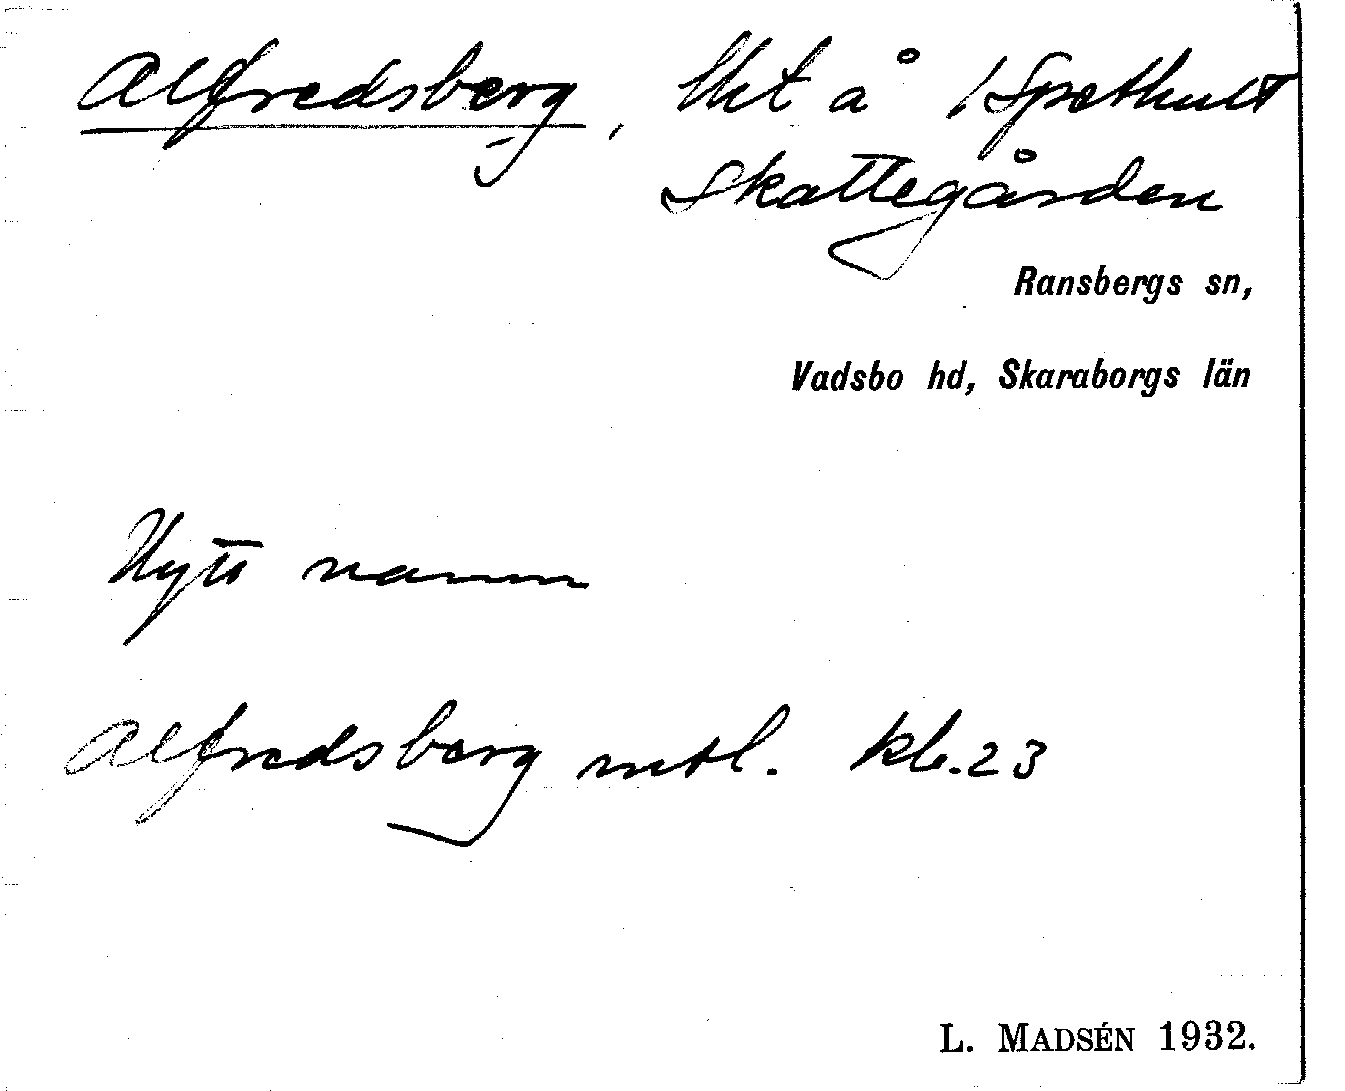 Alfredsberg, lht å 1 Spethult
Skattegården
Ransbergs sn,
Vadsbo hd, Skaraborgs län
Nytt namn
Alfredsberg mtl. kb. 23
L. MADSÉN 1932.